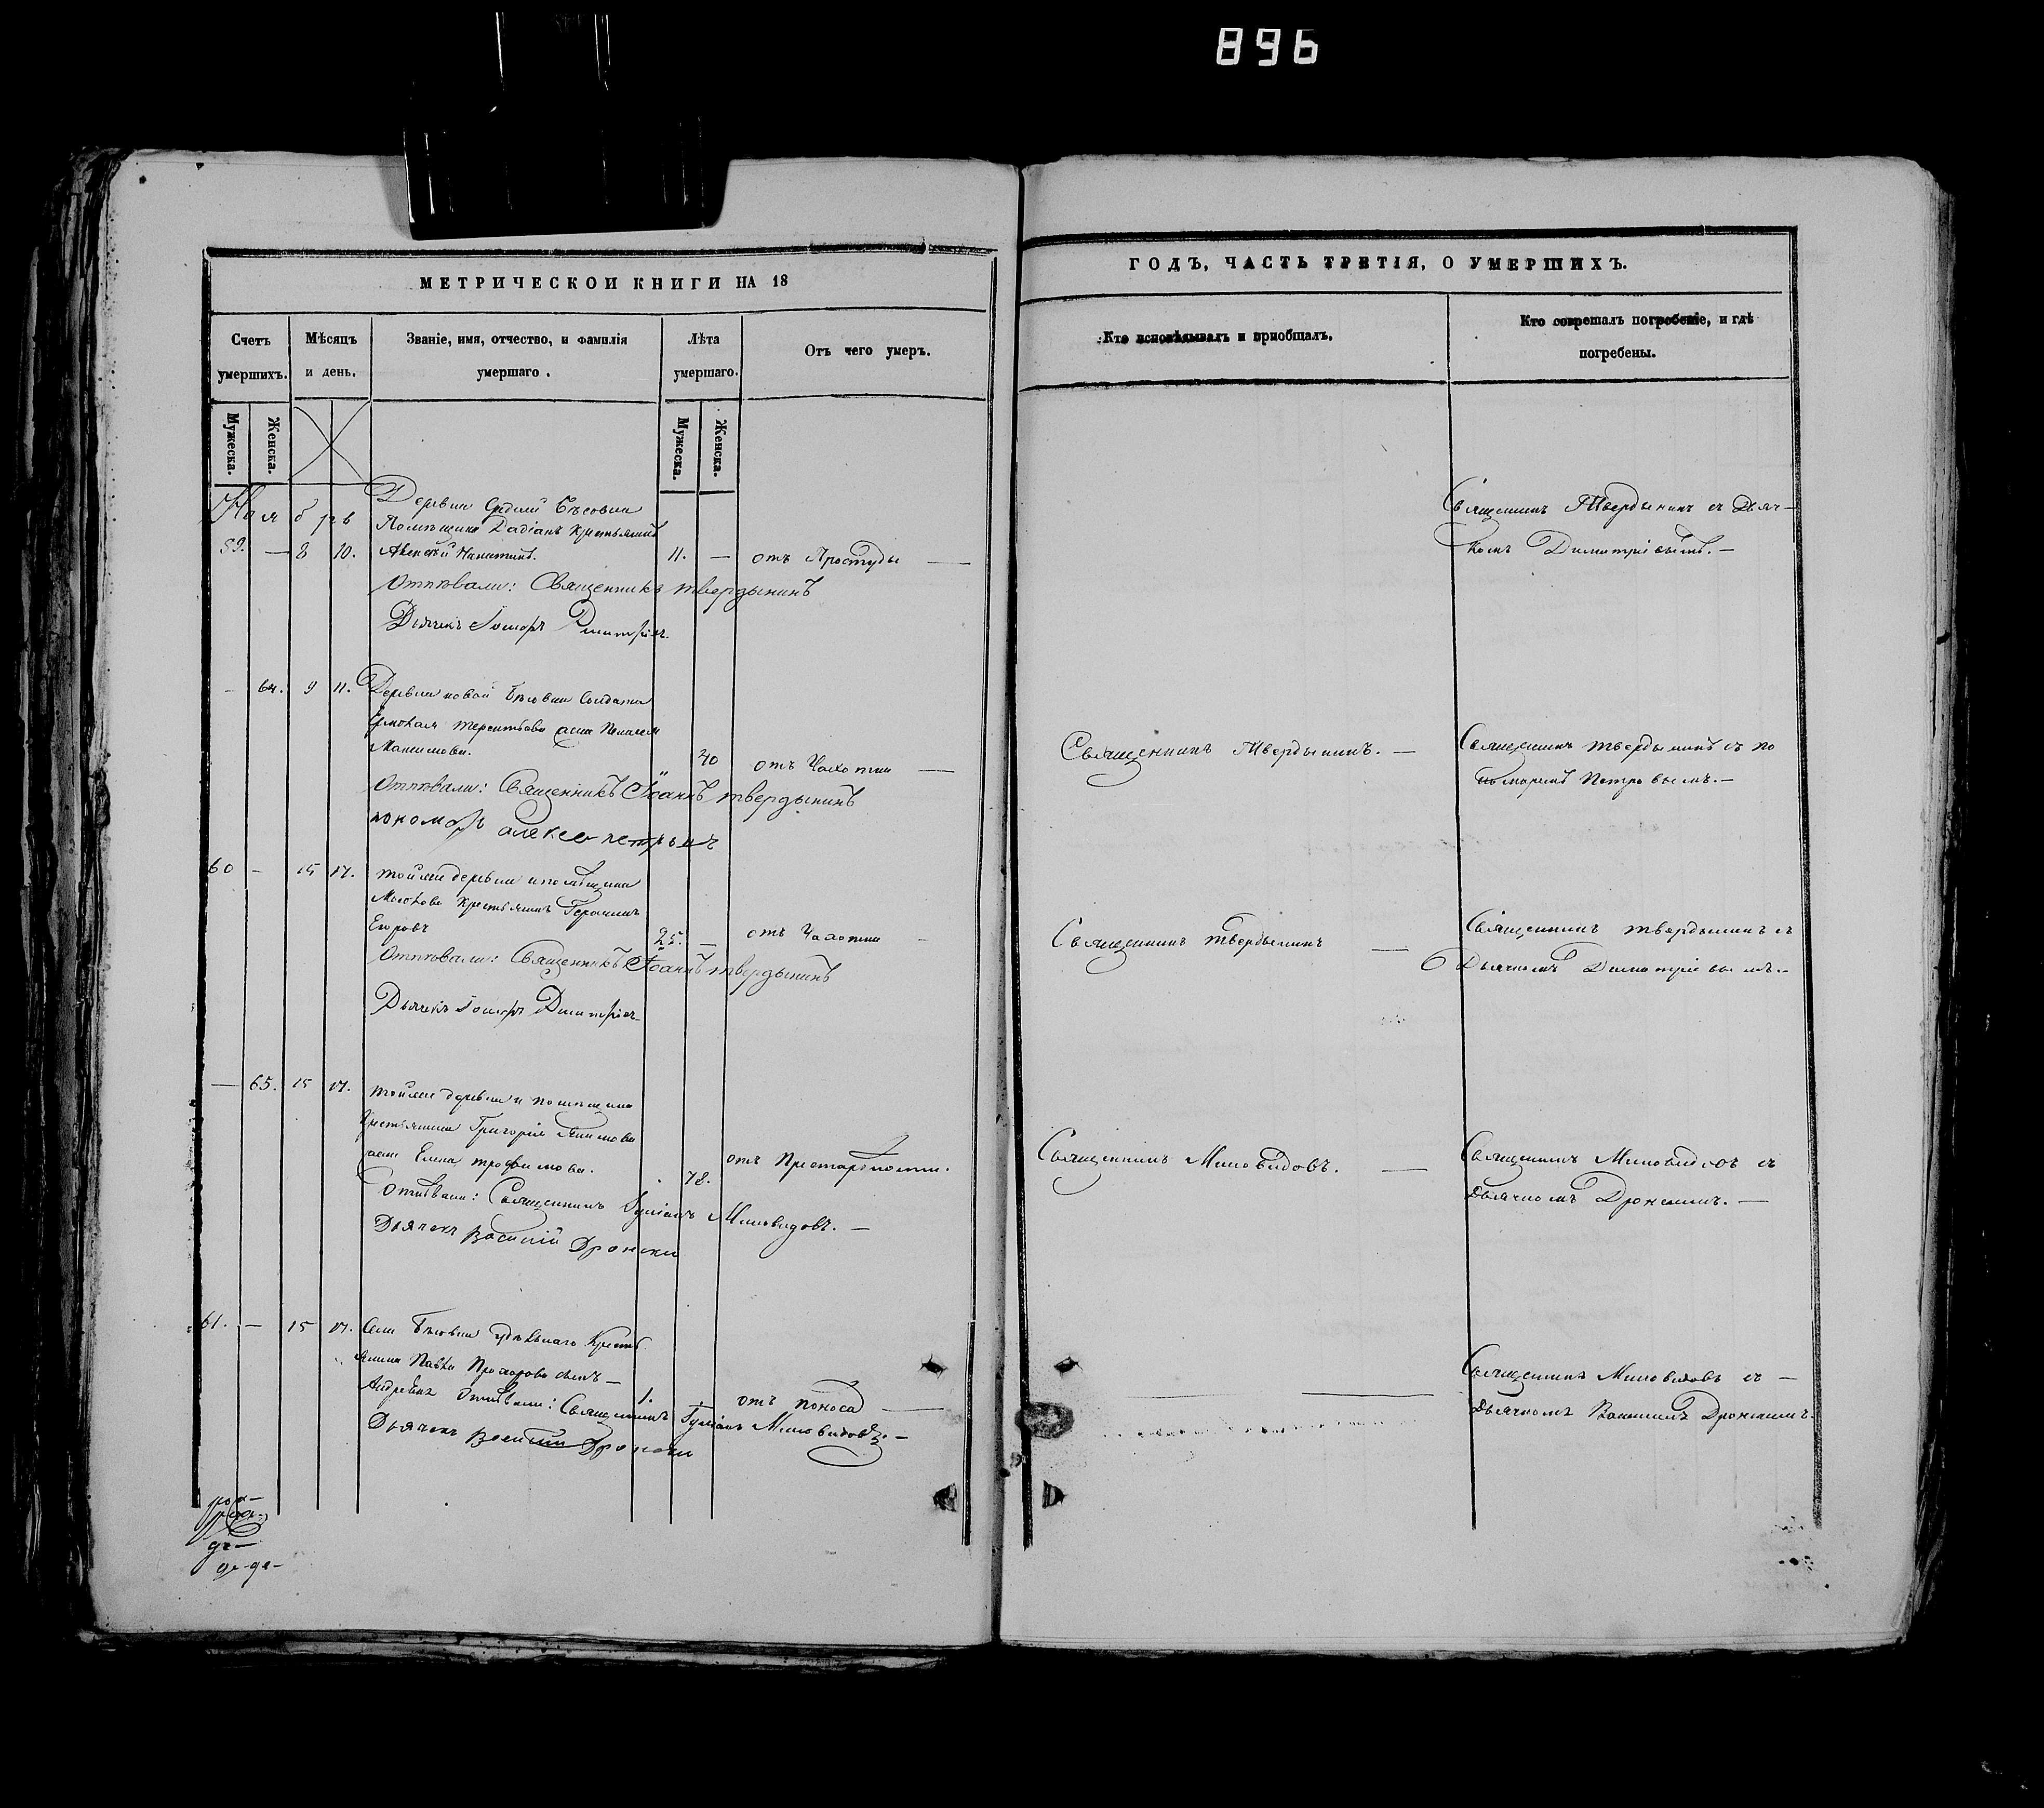 896
МЕТРИЧЕСКОИ КНИГИ НА 18
ГОДЪ, ЧАСТЬ ТРЕТІЯ, О УМЕРШИХЪ.
Счетъ умершихъ.
Мѣсяцъ и день.
Званіе, имя, отчество, и фамилія умершаго.
Лѣта умершаго.
Отъ чего умеръ.
Кто исповѣдывалъ и приобщалъ.
Кто совершалъ погребеніе, и гдѣ погребены.
Мужеска.
Женска.
Мужеска.
Женска.
Ноябрь
Деревни
Помѣщика Дадіанъ крестьянинъ
59. — 8 10. Никитинъ. 11. — отъ Простуды —
Отпѣвали: Священникъ Твердынинъ
Дьячекъ Димитріевъ
Священникъ Твердынинъ съ Дьяч-
комъ Димитріевымъ. —
- 64. 9 11. Деревни новой Бѣсовки Солдата
Терентьева жена
Максимова. 40 отъ Чахотки —
Отпѣвали: Священникъ Іоаннъ Твердынинъ
пономарь алексей петровъ
Священникъ Твердынинъ. —
Священникъ Твердынинъ съ по
номаремъ Петровымъ. —
60 - 15 17. той же деревни и помѣщика
крестьянинъ Герасимъ
Егоровъ 25. — отъ Чахотки -
Отпѣвали: Священникъ Іоаннъ Твердынинъ
Дьячекъ Димитріевъ
Священникъ Твердынинъ —
Священникъ Твердынинъ съ
Дьячкомъ Димитріевымъ. -
— 65. 15 17. той же деревни и помѣщика
крестьянина Григорія Акимова
жена Елена трофимова. 78. отъ Престарѣлости.
Отпѣвали: Священникъ Миловидовъ. —
Дьячекъ Василій Дронкин
Священникъ Миловидовъ. —
Священникъ Миловидовъ съ
Дьячкомъ Дронкинымъ. —
61. — 15 17. Села Бѣсовки удѣльнаго Крестъ
янина Павла Прохорова сынъ —
Андрей 1. — отъ поноса —
Отпѣвали: Священникъ Миловидовъ. —
Дьячекъ Василий Дронкин
Священникъ Миловидовъ съ —
Дьячкомъ Дронкинымъ.